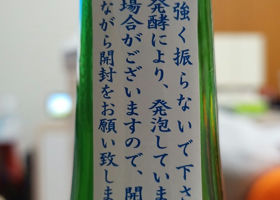 強く振らないで下さ
発酵により、発泡していま
場合がございますので、開
ながら開封をお願い致しま